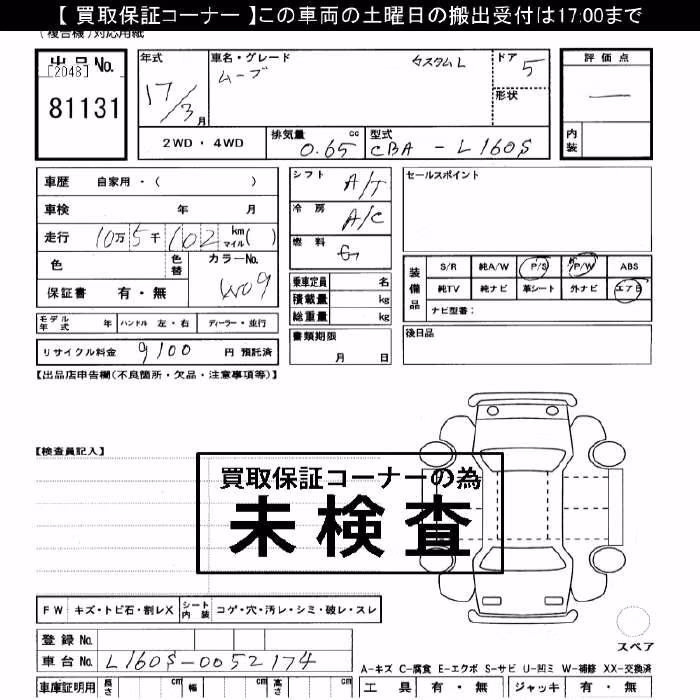 【 買取保証コーナー 】この車両の土曜日の搬出受付は17:00まで
(複合機)対応用紙
出品No.
[2048]
81131
年式 17/3月
車名・グレード ムーブ カスタムL
ドア 5
形状
評価点 —
内装
2WD・4WD
排気量 0.65 cc
型式 CBA - L160S
車歴 自家用・( )
車検 年 月
走行 10万5千102 km マイル( )
色 色替 カラーNo. W09
保証書 有・無
シフト A/T
冷房 A/C
燃料 G
乗車定員 名
積載量 kg
総重量 kg
セールスポイント
装備品 S/R 純A/W P/S P/W ABS
純TV 純ナビ 革シート 外ナビ エアB
ナビ型番:
モデル年式 年 ハンドル 左・右 ディーラー・並行
書類期限 月 日
後日品
リサイクル料金 9100 円 預託済
【出品店申告欄(不良箇所・欠品・注意事項等)】
【検査員記入】
買取保証コーナーの為
未検査
FW キズ・トビ石・割レX シート内装 コゲ・穴・汚レ・シミ・破レ・スレ
登録No.
車台No. L160S-0052174
スペア
A-キズ C-腐食 E-エクボ S-サビ U-凹ミ W-補修 XX-交換済
車庫証明用 長さ cm 幅 cm 高さ cm
工具 有・無 ジャッキ 有・無